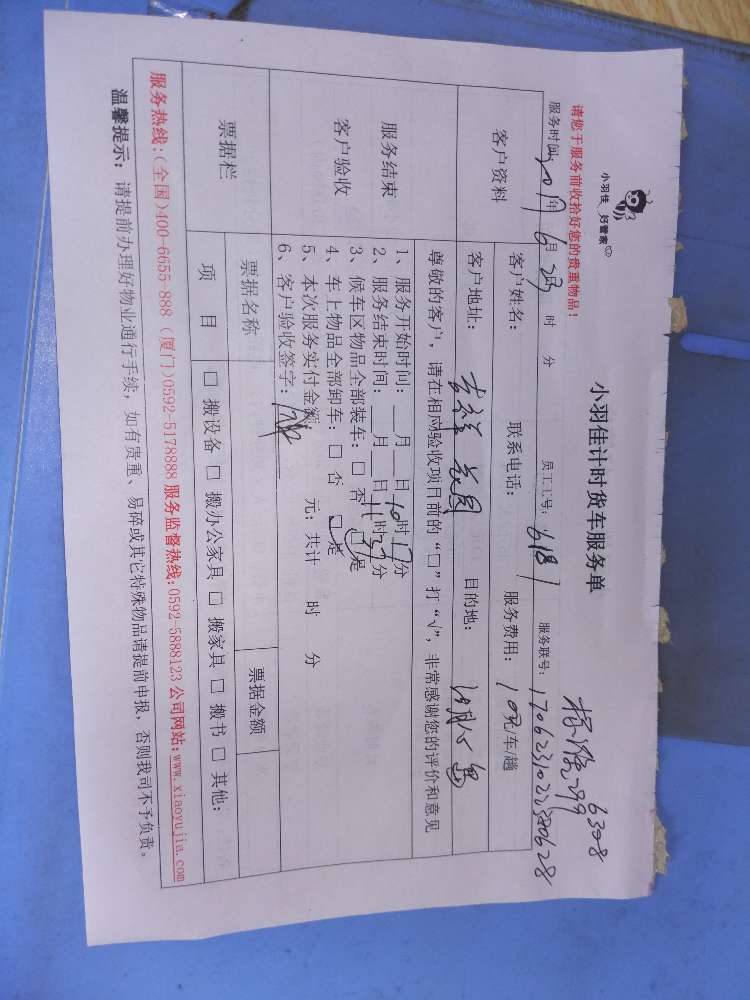 小羽佳 好管家
请您于服务前收拾好您的贵重物品!
小羽佳计时货车服务单
6308
服务时间: 年 6月 23 时 分 员工工号: 6181 服务联号: 1706231022380628
客户资料 客户姓名: 联系电话: 服务费用: 元/车/趟
客户地址: 吉祥家园 目的地:
服务结束
客户验收
尊敬的客户，请在相应验收项目前的“□”打“√”，非常感谢您的评价和意见
1、服务开始时间: 月 日 10时17分
2、服务结束时间: 月 日 11时27分
3、候车区物品全部装车: □ 否 □ 是
4、车上物品全部卸车: □ 否 □ 是
5、本次服务实付金额: 元; 共计 时 分
6、客户验收签字:
票据栏 票据名称 票据金额
项 目 □ 搬设备 □ 搬办公家具 □ 搬家具 □ 搬书 □ 其他:
服务热线:(全国)400-6655-888 (厦门)0592-5178888 服务监督热线:0592-5888123 公司网站:www.xiaoyujia.com
温馨提示: 请提前办理好物业通行手续，如有贵重、易碎或其它特殊物品请提前申报，否则我司不予负责。